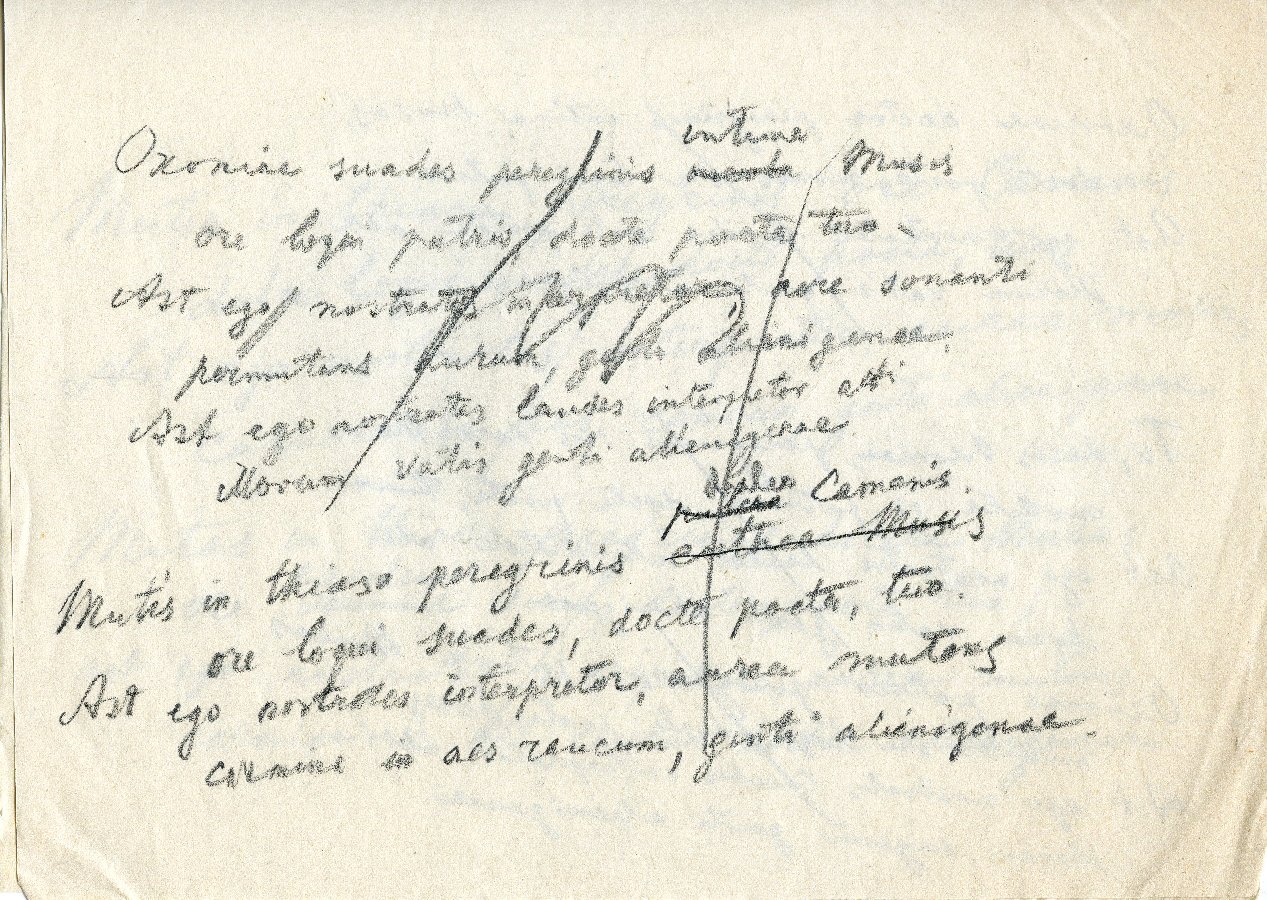 interne
Oxoniae suades peregrinis Musis
ore loqui patrio, docte poeta tuo
Ast ego nostrates interpretor, aere sonanti
permutans aurum, genti alienigenae.
Ast ego nostrates laudes interpretor asti
vatis genti alienigenae
Camenis.
Mutis in thiaso peregrinis Musis
ore loqui suades, docte poeta, tuo.
Ast ego nostrates interpretor, aurea mutans
carmina in aes raucum, genti alienigenae.